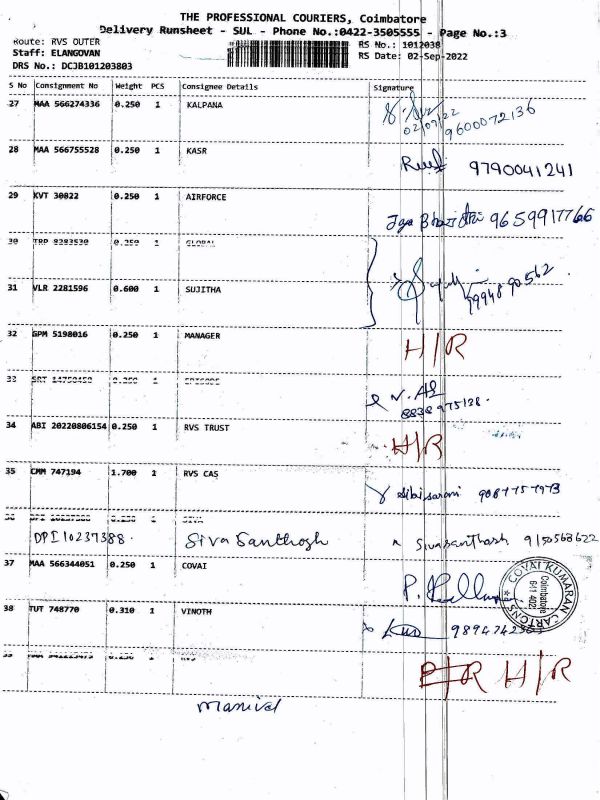 THE PROFESSIONAL COURIERS, Coimbatore
Delivery Runsheet - SUL - Phone No.:0422-3505555 - Page No.:3
Route: RVS OUTER
RS No.: 1012038
Staff: ELANGOVAN
RS Date: 02-Sep-2022
DRS No.: DCJB101203803
S No Consignment No Weight PCS Consignee Details Signature
27 MAA 566274336 0.250 1 KALPANA
02/09/22 9600072136
28 MAA 566755528 0.250 1 KASR
9790041241
29 KVT 30822 0.250 1 AIRFORCE
9659917766
30 TRP 8283530 0.250 1 GLOBAL
31 VLR 2281596 0.600 1 SUJITHA
32 GPM 5198016 0.250 1 MANAGER H/R
33 1
8838975128.
34 ABI 20220806154 0.250 1 RVS TRUST H/R
35 CMM 747194 1.700 1 RVS CAS
36 1 SIVA
DPI 10237388. Siva Santhosh Sivasanthosh 9150568622
37 MAA 566344051 0.250 1 COVAI
COVAI KUMARAN CARTONS
Coimbatore
641 402
38 TUT 748770 0.310 1 VINOTH
39 1 RVS H/R